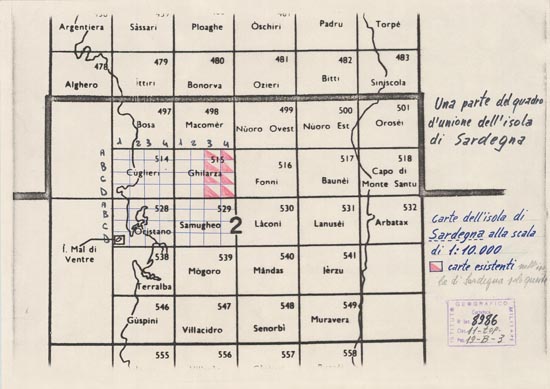 Argentiera Sàssari Ploaghe Òschiri Padru Torpé
478 479 480 481 482 483
Alghero Ittiri Bonorva Ozieri Bitti Siniscola
497 498 499 500 501
Bosa Macomér Nùoro Ovest Nùoro Est Oroséi
1 2 3 4 1 2 3 4
A
B
C
D
514 515 516 517 518
Cúglieri Ghilarza Fonni Baunéi Capo di
Monte Santu
A
B
C
D
528 529 530 531 532
Oristano Samugheo Làconi Lanuséi Arbatax
2
Í. Mal di
Ventre
538 539 540 541
Terralba Mògoro Màndas Ièrzu
546 547 548 549
Gùspini Villacidro Senorbì Muravera
555 556 557 558
Una parte del quadro
d'unione dell'isola
di Sardegna
carte dell'isola di
Sardegna alla scala
di 1:10.000
carte esistenti
di Sardegna
ISTITUTO GEOGRAFICO MILITARE
8986
19-B-3